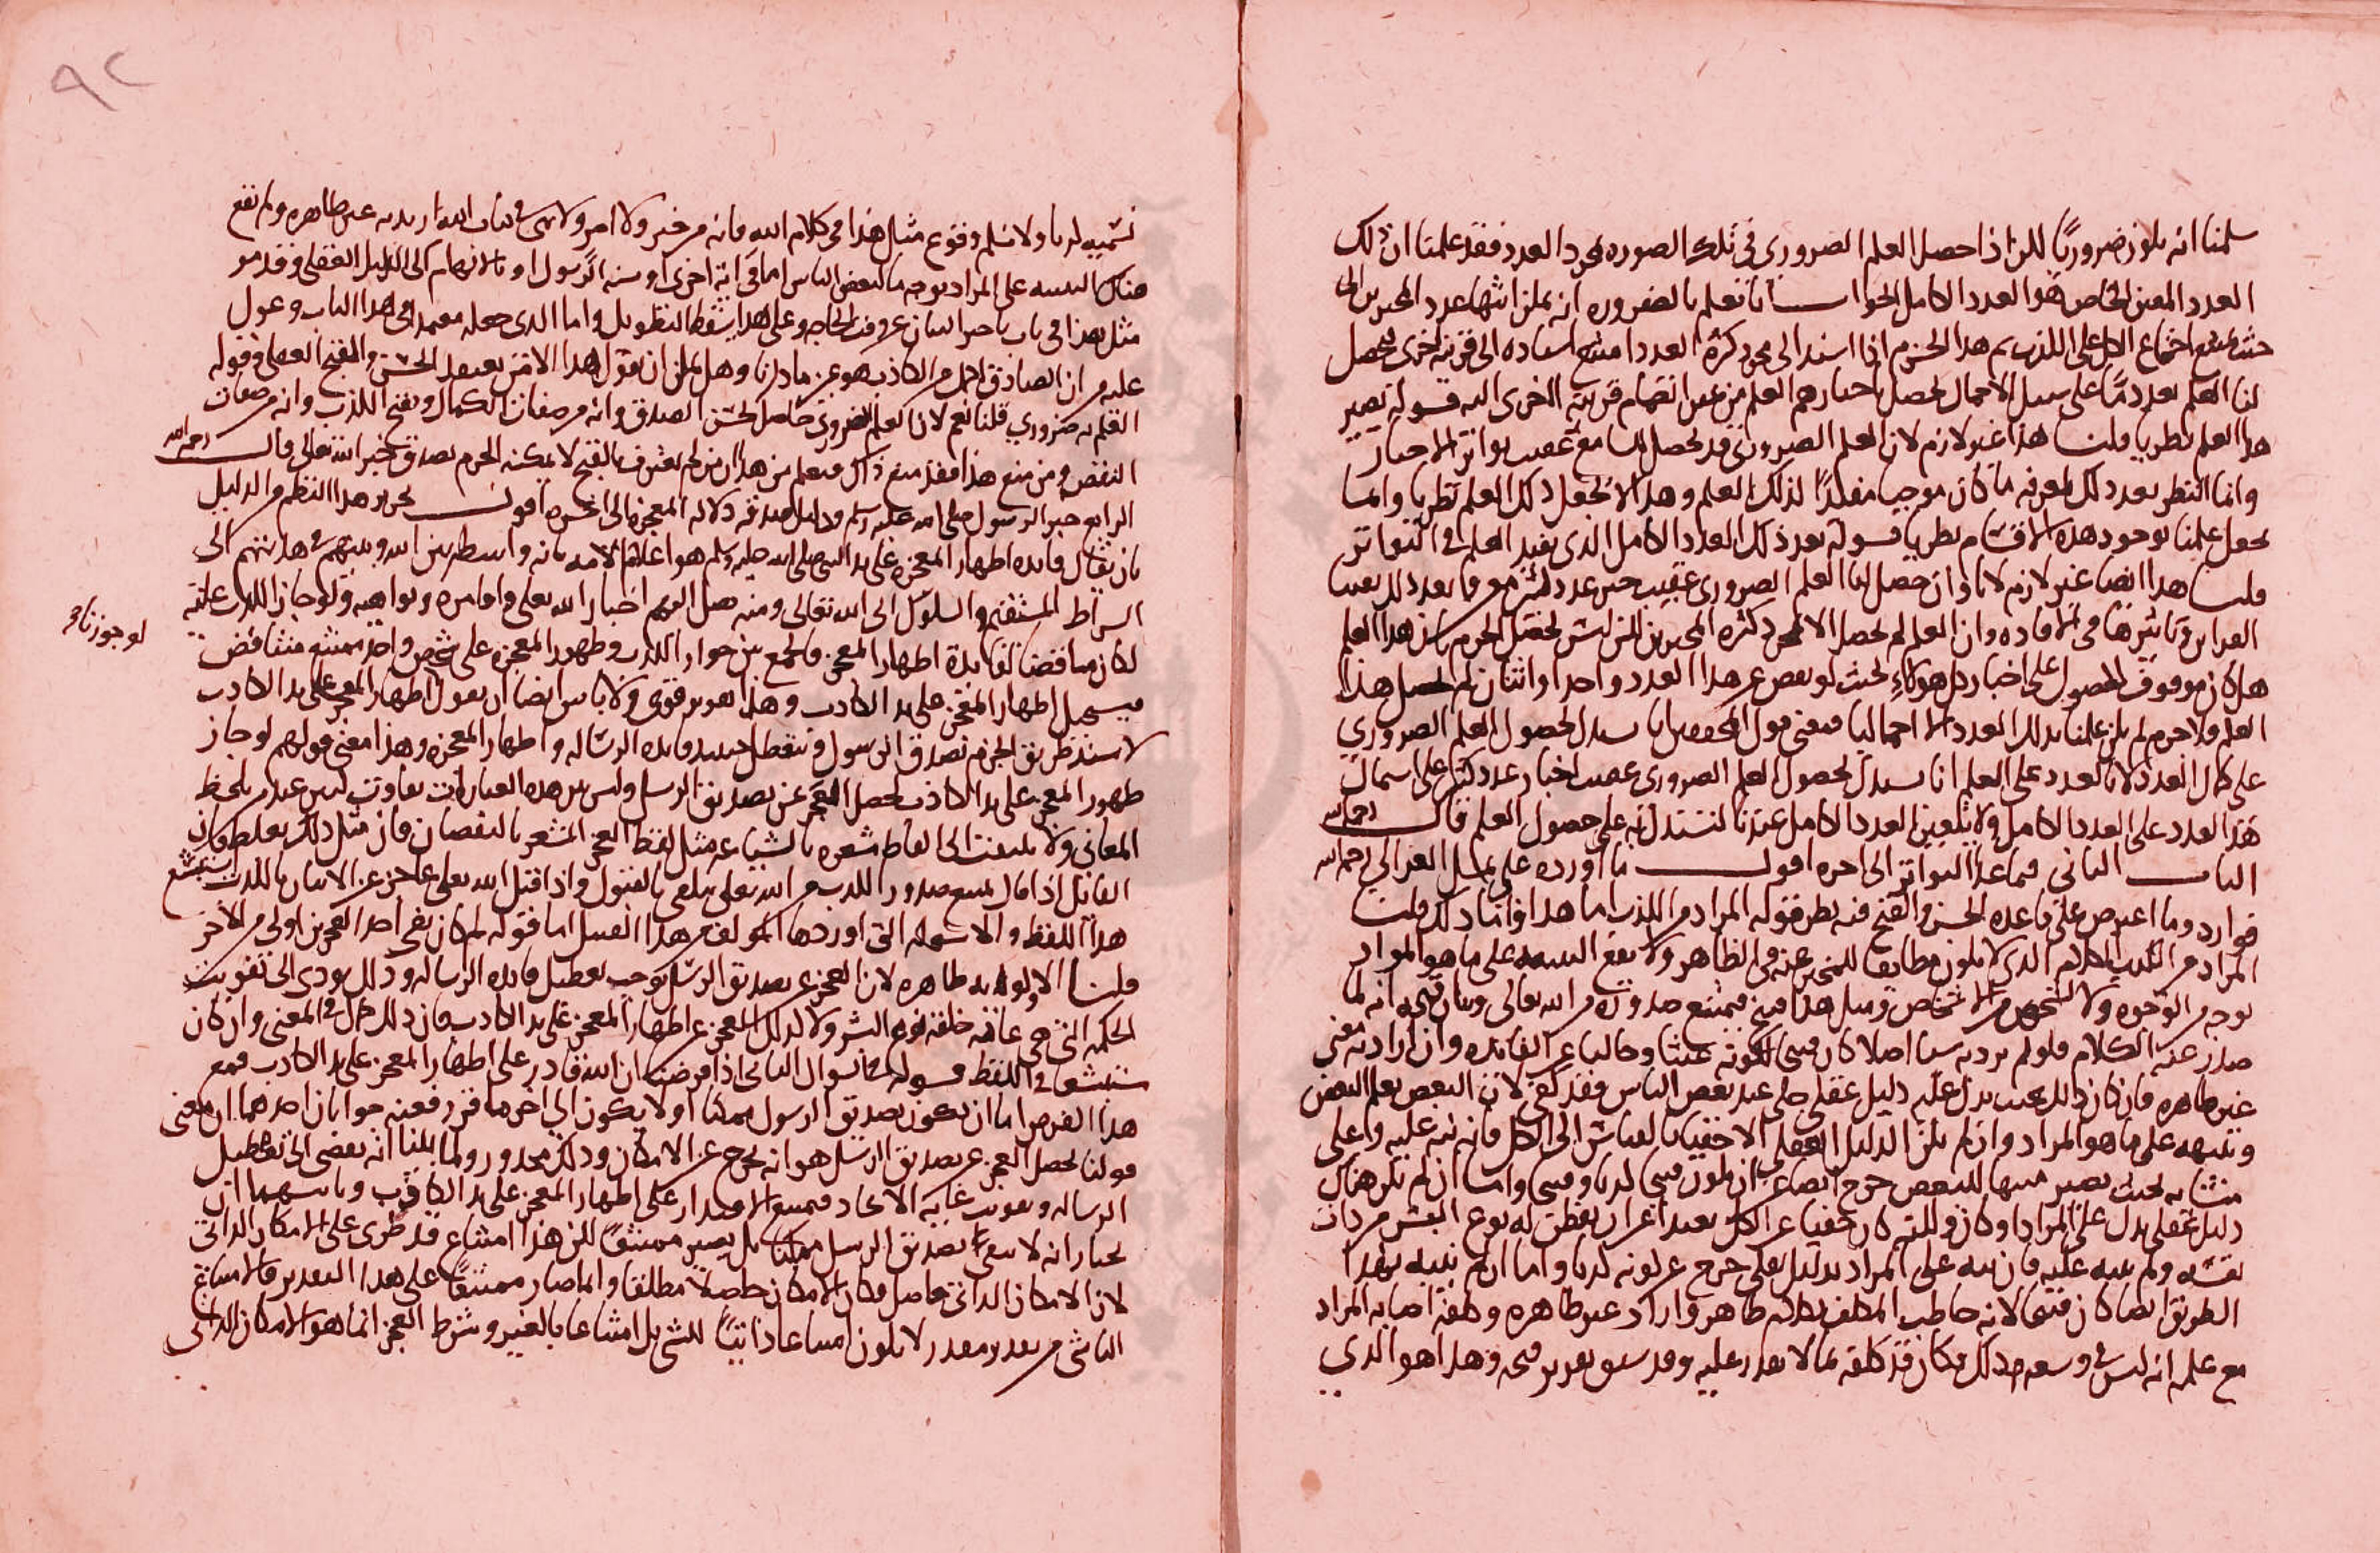 سلمنا انه يكون ضروريا لكن اذا حصل العلم الضروري في تلك الصوره بمجرد العدد فقد علمنا ان ذلك
العدد المعين الخاص هو العدد الكامل الجواب انا نعلم بالضروره انه يمكن انتها عدد المخبرين الى
حيث يمتنع اجتماع الكل على الكذب ثم هذا الجزم اذا اسند الى مجرد كثرة العدد امتنع اسناده الى قرينه اخرى فيحصل
لنا العلم بعدد ما على سبيل الاجمال يحصل باخبارهم العلم من غير انضمام قرينه اخرى اليه قوله تصير
هذا العلم نظريا قلنا هذا غير لازم لان العلم الضروري قد يحصل للسامع عقيب تواتر الاخبار
وانما النظر بعد ذلك لمعرفه ما كان موجبا مفيدا لذلك العلم وهذا لا يجعل ذلك العلم نظريا وانما
يجعل علمنا بوجود هذه الاقسام نظريا قوله بعد ذلك العدد الكامل الذي يفيد العلم في التواتر
قلنا هذا ايضا غير لازم لانا وان حصل لنا العلم الضروري عقيب خبر عدد كثير
القراين وتاثيرها في الافاده وان العلم لم يحصل الا بمجرد كثره المخبرين لكن ليس يحصل الجزم بان هذا العلم
هل كان موقوف الحصول على اخبار كل هولاء بحيث لو نقص عن هذا العدد واحد او اثنان لم يحصل هذا
العلم فلا جرم لم يكن علمنا بذلك العدد الا اجماليا فمعنى قول المحققين انا نستدل بحصول العلم الضروري
على كمال العدد لا بالعدد على العلم انا نستدل بحصول العلم الضروري عقيب اخبار عدد كثير على اشتمال
هذا العدد على العدد الكامل ولا يتعين العدد الكامل عندنا لنستدل به على حصول العلم قال رحمه الله
الباب الثاني فيما عدا التواتر الى اخره اقول ما اورده على الغزالي رحمه الله
فوارد وما اعترض على قاعده الحسن والقبح فيه نظر فقوله المراد من الكذب اما هذا واما ذلك قلنا
المراد من الكذب الكلام الذي لا يكون مطابقا للمخبر عنه في الظاهر ولا يقع التنبيه على ما هو المراد
بوجه من الوجوه ولا لشخص من الاشخاص ومثل هذا قبيح فيمتنع صدوره من الله تعالى وبيان قبحه انه لما
صدر عنه الكلام فلو لم يرد به شيا اصلا كان قبيحا لكونه عبثا وخاليا عن الفائده وان اراد به معنى
غير ظاهره فان كان ذلك بحيث يدل عليه دليل عقلي جلي عند بعض الناس فقد كفى لان البعض يعلم البعض
وينبهه على ما هو المراد وان لم يكن الدليل العقلي الا خفيا بالقياس الى الكل فانه نبه عليه واعلى
بحيث تصير منبها للبعض خرج ايضا عن ان يكون قبيحا واما ان لم يكن هناك
دليل عقلي يدل على المراد او كان ولكنه كان خفيا عن الكل بعيدا عن ان يفطن له نوع البشر من ذات
نفسه ولم ينبه عليه فان نبه على المراد بدليل نقلي خرج عن كونه كذبا واما ان لم ينبه بهذا
الطريق ايضا كان قبيحا لانه خاطب المكلف بكلام ظاهر واراد غير ظاهره وكلفه اصابه المراد
مع علمه انه ليس في وسعه ذلك فكان قد كلفه بما لا يقدر عليه وقد سبق تقرير قبحه وهذا هو الذي
٩٢
نسميه كذبا ولا نسلم وقوع مثل هذا في كلام الله فانه من خبر ولا امر ولا نهي في كتاب الله اريد به غير ظاهره ولم يقع
هناك التنبيه على المراد بوجه ما لبعض الناس اما في ايه اخرى او سنه الرسول او بالانضمام الى الدليل العقلي وقد مر
مثل هذا في باب تاخير البيان عن وقت الحاجه وعلى هذا يسقط التطويل واما الذي جعله معتمدا في هذا الباب وعول
عليه من ان الصادق اكمل من الكاذب هو عين ما ذكرنا وهل يمكن ان يقول هذا الا من يعتقد الحسن والقبح العقلي وقوله
العلم به ضروري قلنا نعم لان العلم الضروري حاصل بحسن الصدق وانه من صفات الكمال وبقبح الكذب وانه من صفات
النقص ومن منع هذا فقد منع ذاك فنعلم من هذا ان من لم يعترف بالقبح لا يمكنه الجزم بصدق خبر الله تعالى قال رحمه الله
الرابع خبر الرسول صلى الله عليه وسلم ودليل صدقه دلاله المعجزه الى اخره اقول تحرير هذا النظم من الدليل
بان يقال فايده اظهار المعجزه على يد النبي صلى الله عليه وسلم هو اعلام الامه بانه واسطه بين الله وبينهم في هدايتهم الى
السراط المستقيم والسلوك الى الله تعالى ومنه يصل اليهم اخبار الله تعالى واوامره ونواهيه ولو جاز الكذب عليه
لو جوزنا
لكان مناقضا لفايدة اظهار المعجز والجمع بين جواز الكذب وظهور المعجزه على شخص واحد ممتنع متناقض
فيستحيل اظهار المعجز على يد الكاذب وهذا تقرير قوي ولا باس ايضا ان نقول اظهار المعجز على يد الكاذب
لاسند طريق الجزم بصدق الرسول وتتعطل حينيذ فايده الرساله واظهار المعجزه وهذا معنى قولهم لو جاز
ظهور المعجز على يد الكاذب لحصل العجز عن تصديق الرسل وليس بين هذه العبارات تفاوت لمن يلحظ
المعاني ولا يلتفت الى الفاظ مشعره بالشناعه مثل لفظ العجز المشعر بالنقصان فان مثل ذلك
القايل اذا قال يمتنع صدور الكذب من الله تعالى تلقى بالقبول واذا قيل الله تعالى عاجز عن الاتيان بالكذب استبشع
هذا اللفظ والاسوله التي اوردها المولف من هذا القبيل اما قوله لم كان نفي احد العجزين اولى من الاخر
قلنا الاولويه ظاهره لان العجز عن تصديق الرسل يوجب تعطيل فايده الرساله وذلك يودي الى تفويت
الحكمه التي هي غاية خلقه نوع البشر ولا كذلك العجز عن اظهار المعجز على يد الكاذب فان ذلك كمال في المعنى وان كان
يستبشع في اللفظ قوله في السوال الثاني اذا فرضنا ان الله قادر على اظهار المعجز على يد الكاذب فمع
هذا الفرض اما ان يكون تصديق الرسول ممكنا او لا يكون الى اخر ما قرر فعنه جوابان احدهما ان معنى
قولنا يحصل العجز عن تصديق الرسل هو انه يخرج عن الامكان وذلك محذور ولما قلنا انه يفضي الى تعطيل
الرساله وتفويت غايه الايجاد فيمتنع الاقتدار على اظهار المعجز على يد الكاذب وثانيهما ان
نختار انه لا يبقى تصديق الرسل ممكنا بل يصير ممتنعا لكن هذا امتناع قد طرى على الامكان الذاتي
لان الامكان الذاتي حاصل فكان الامكان حاصلا مطلقا وانما صار ممتنعا على هذا التقدير والامتناع
الناشي من تقدير مقدر لا يكون امتناعا ذاتيا للشي بل امتناعا بالغير وشرط العجز انما هو الامكان الذاتي